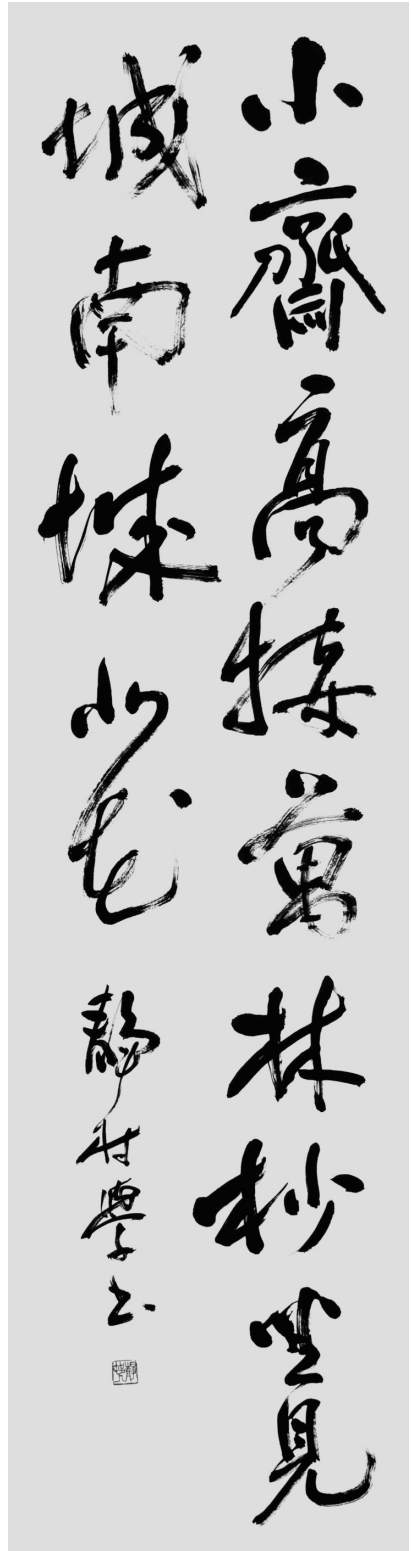 小齋高接萬林杪坐見
城南城北花 靜村學書